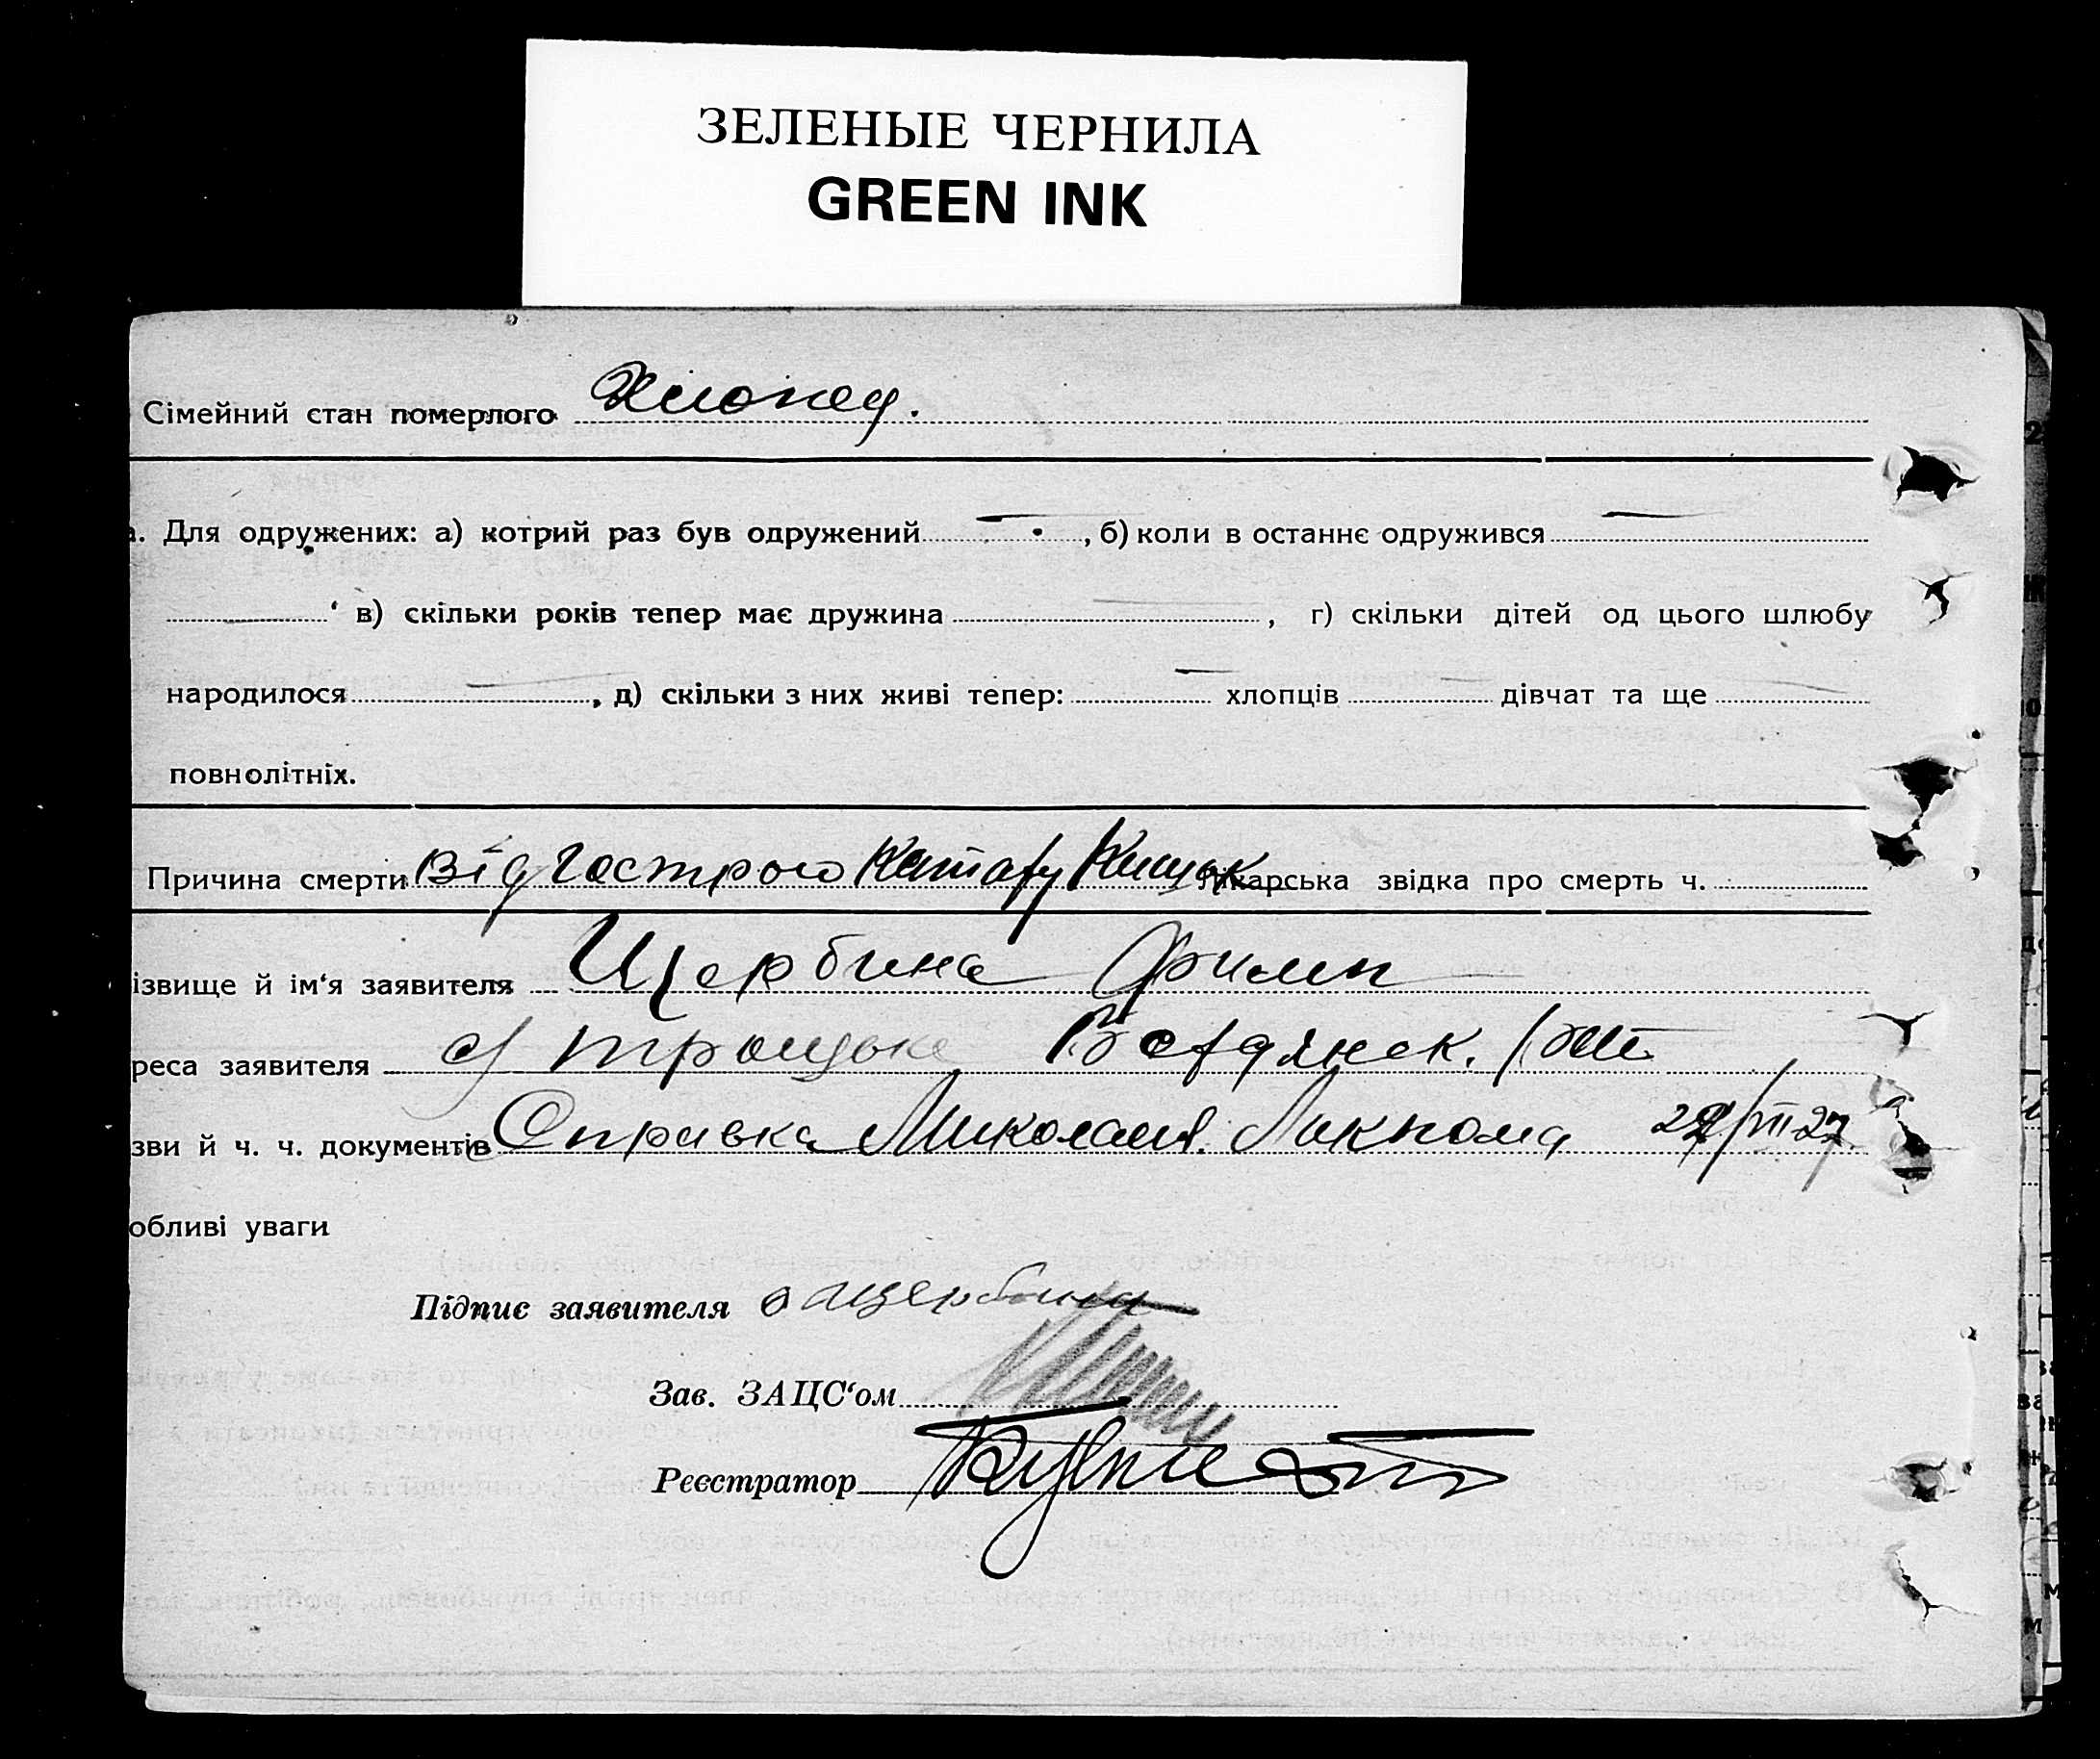 ЗЕЛЕНЫЕ ЧЕРНИЛА
GREEN INK
Сімейний стан померлого Хлопец.
а. Для одружених: а) котрий раз був одружений — , б) коли в останнє одружився —
— в) скільки років тепер має дружина — , г) скільки дітей од цього шлюбу
народилося — , д) скільки з них живі тепер: — хлопців — дівчат та ще —
повнолітніх.
Причина смерти Від гострого Катару Кишок Лікарська звідка про смерть ч.
ізвище й ім‘я заявителя Щербина Филип
реса заявителя с/ Троцьке Бердянск.
зви й ч. ч. документів Справка Миколаїв. 27
обливі уваги
Підпис заявителя Щербина
Зав. ЗАЦС‘ом
Реєстратор